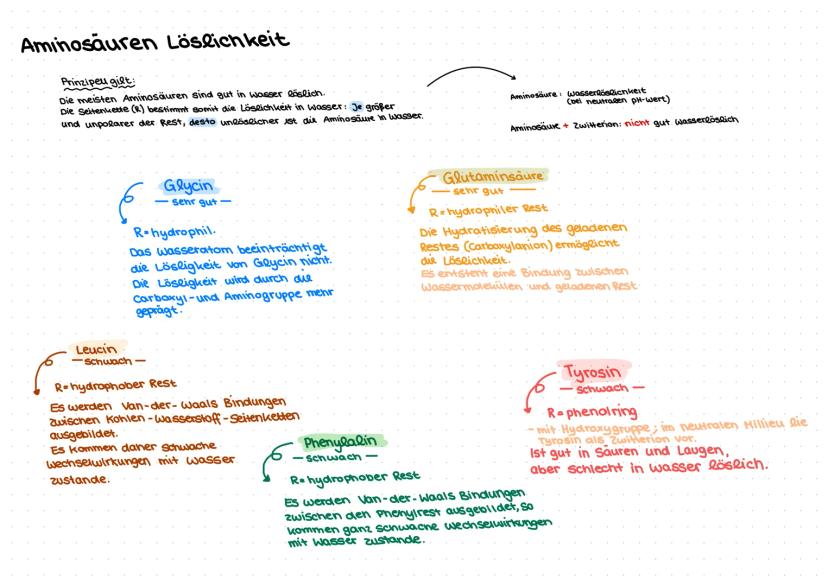 Aminosäuren Löslichkeit
Prinzipell gilt:
Die meisten Aminosäuren sind gut in Wasser löslich.
Die Seitenkette (R) bestimmt somit die Löslichkeit in Wasser: Je größer
und unpolarer der Rest, desto unlöslicher ist die Aminosäure in Wasser.
Aminosäure: Wasserlöslichkeit
(bei neutralen pH-Wert)
Aminosäure + Zwitterion: nicht gut Wasserlöslich
Glycin
— sehr gut —
R = hydrophil.
Das Wasseratom beeinträchtigt
die Lösligkeit von Glycin nicht.
Die Lösligkeit wird durch die
Carboxyl- und Aminogruppe mehr
geprägt.
Glutaminsäure
— sehr gut —
R = hydrophiler Rest
Die Hydratisierung des geladenen
Restes (Carboxylanion) ermöglicht
die Löslichkeit.
Es entsteht eine Bindung zwischen
Wassermolekülen und geladenen Rest
Leucin
— schwach —
R = hydrophober Rest
Es werden Van-der-Waals Bindungen
zwischen Kohlen-Wasserstoff-Seitenketten
ausgebildet.
Es kommen daher schwache
Wechselwirkungen mit Wasser
zustande.
Phenylalin
— schwach —
R = hydrophober Rest
Es werden Van-der-Waals Bindungen
zwischen den Phenylrest ausgebildet, so
kommen ganz schwache Wechselwirkungen
mit Wasser zustande.
Tyrosin
— schwach —
R = phenolring
- mit Hydroxygruppe; im neutralen Millieu lie
Tyrosin als Zwitterion vor.
Ist gut in Säuren und Laugen,
aber schlecht in Wasser löslich.